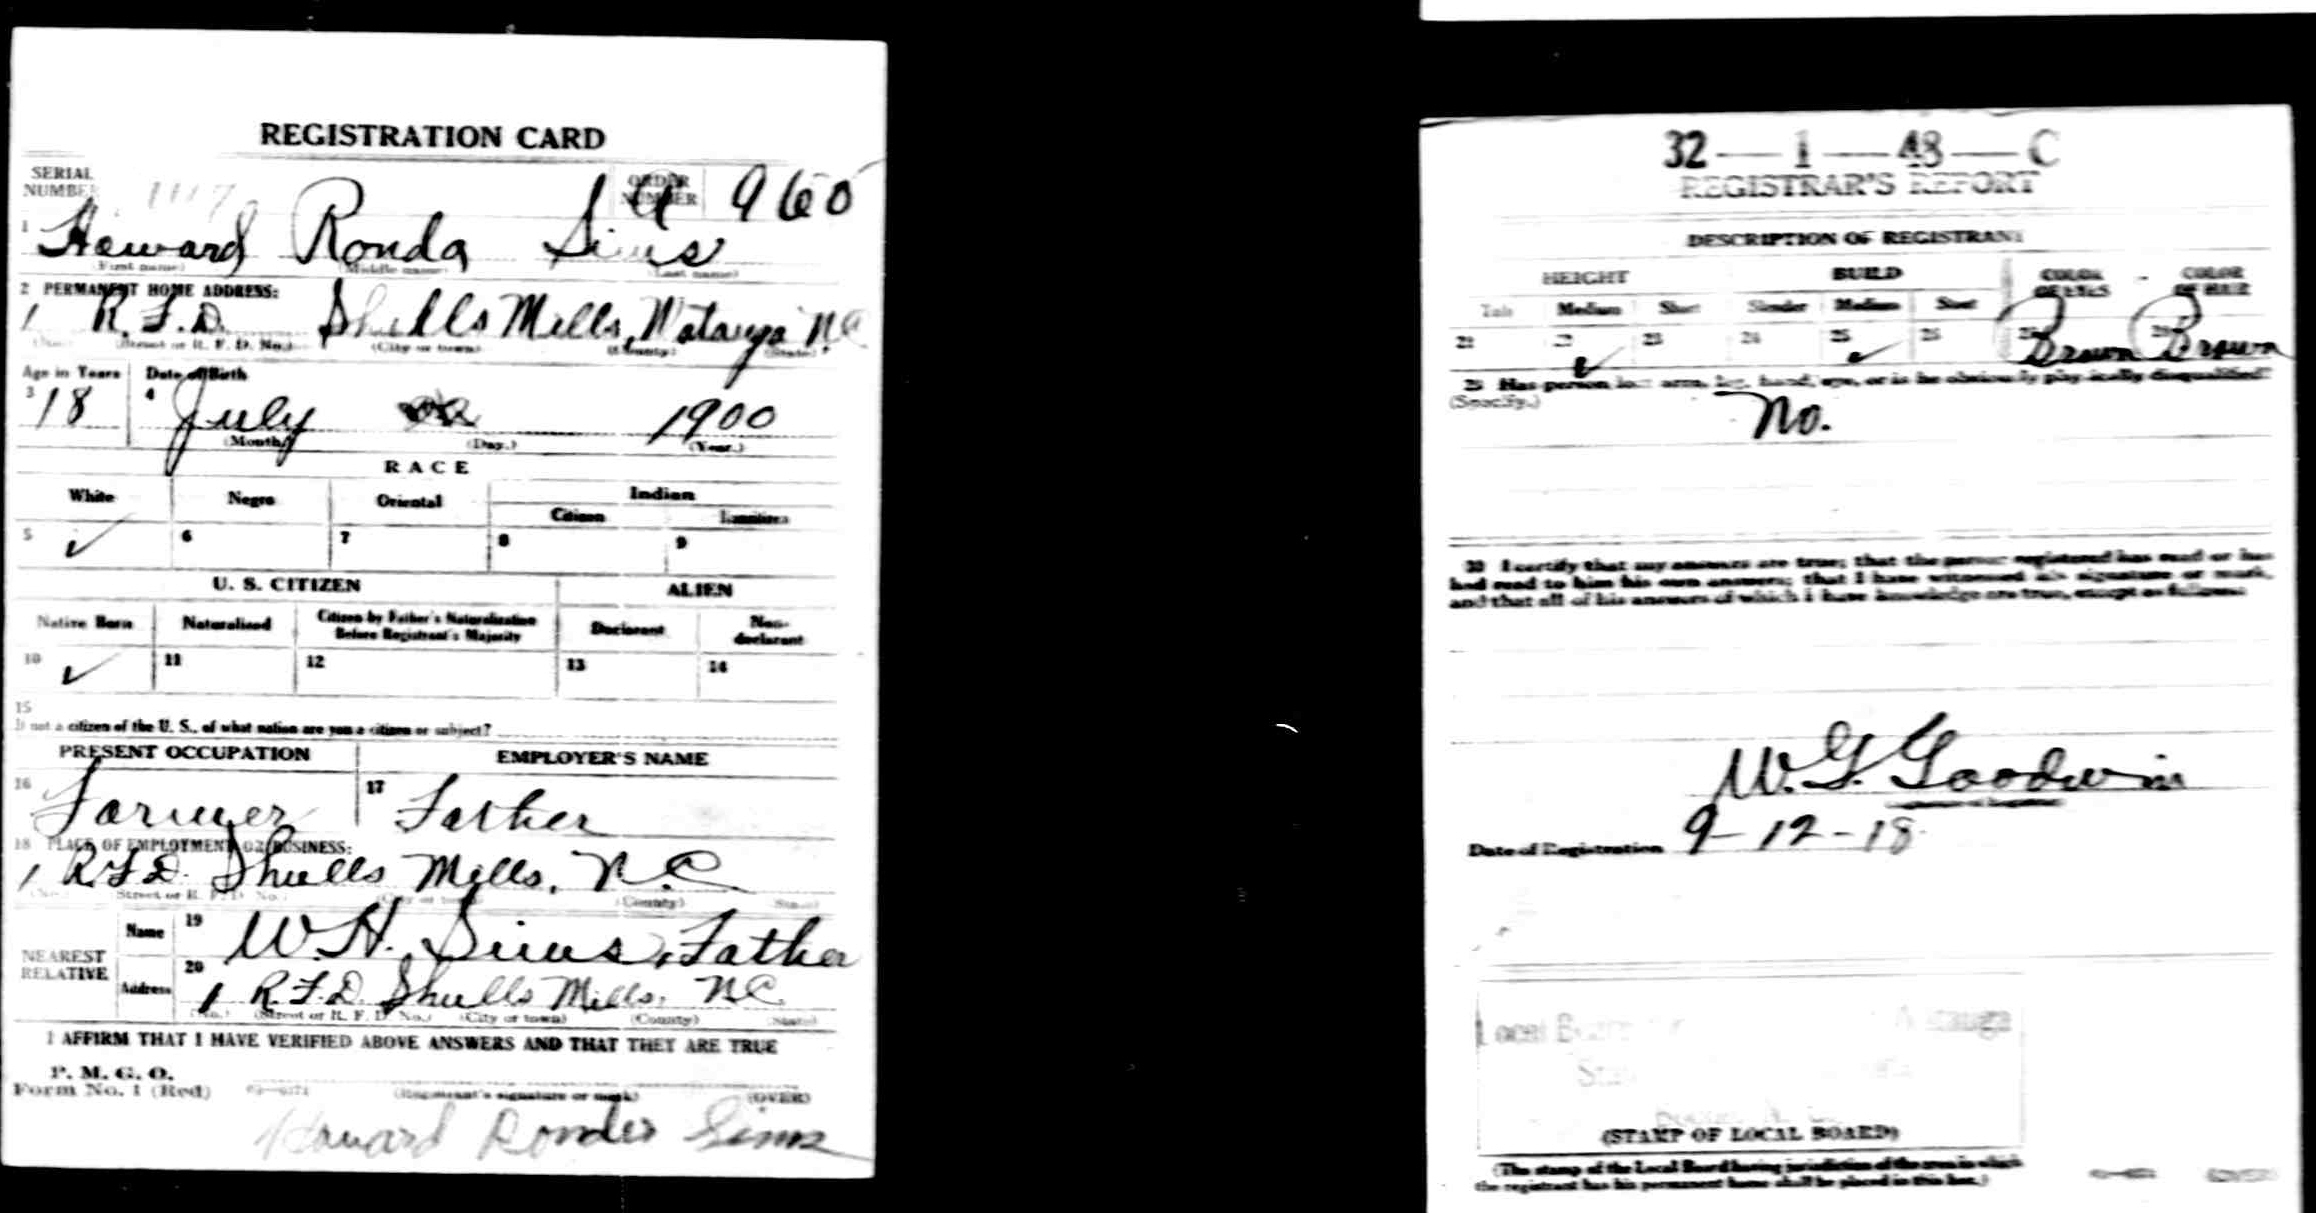 REGISTRATION CARD
SERIAL NUMBER 1117 ORDER NUMBER A 960
1 Howard Ronda Sims
(First name) (Middle name) (Last name)
2 PERMANENT HOME ADDRESS:
1 R.F.D. Shulls Mills, Watauga N.C.
(No.) (Street or R. F. D. No.) (City or town) (County) (State)
Age in Years Date of Birth
3 18 4 July 1900
(Month) (Day.) (Year.)
RACE
White Negro Oriental Indian
Citizen
5 ✓ 6 7 8 9
U. S. CITIZEN ALIEN
Native Born Naturalized Citizen by Father's Naturalization Before Registrant's Majority Declarant Non-declarant
10 ✓ 11 12 13 14
15
If not a citizen of the U. S., of what nation are you a citizen or subject?
PRESENT OCCUPATION EMPLOYER'S NAME
16 Farmer 17 Father
18 PLACE OF EMPLOYMENT OR BUSINESS:
1 R.F.D. Shulls Mills, N.C.
(No.) (Street or R. F. D. No.) (City or town) (County) (State)
NEAREST RELATIVE Name 19 W.H. Sims, Father
Address 20 1 R.F.D. Shulls Mills, N.C.
(No.) (Street or R. F. D. No.) (City or town) (County) (State)
I AFFIRM THAT I HAVE VERIFIED ABOVE ANSWERS AND THAT THEY ARE TRUE
P. M. G. O.
Form No. 1 (Red) (Registrant's signature or mark) (OVER)
Howard Ronder Sims
32—1—48—C
REGISTRAR'S REPORT
DESCRIPTION OF REGISTRANT
HEIGHT BUILD COLOR OF EYES COLOR OF HAIR
Tall Medium Short Slender Medium Stout
21 22 ✓ 23 24 25 ✓ 26 27 Brown 28 Brown
29 Has person lost arm, leg, hand, eye, or is he obviously physically disqualified?
(Specify.)
No.
30 I certify that my answers are true; that the person registered has read or has
had read to him his own answers; that I have witnessed his signature or mark,
and that all of his answers of which I have knowledge are true, except as follows:
W.G. Goodwin
Date of Registration 9-12-18
Local Board Watauga
(STAMP OF LOCAL BOARD)
(The stamp of the Local Board having jurisdiction of the area in which
the registrant has his permanent home shall be placed in this box.)